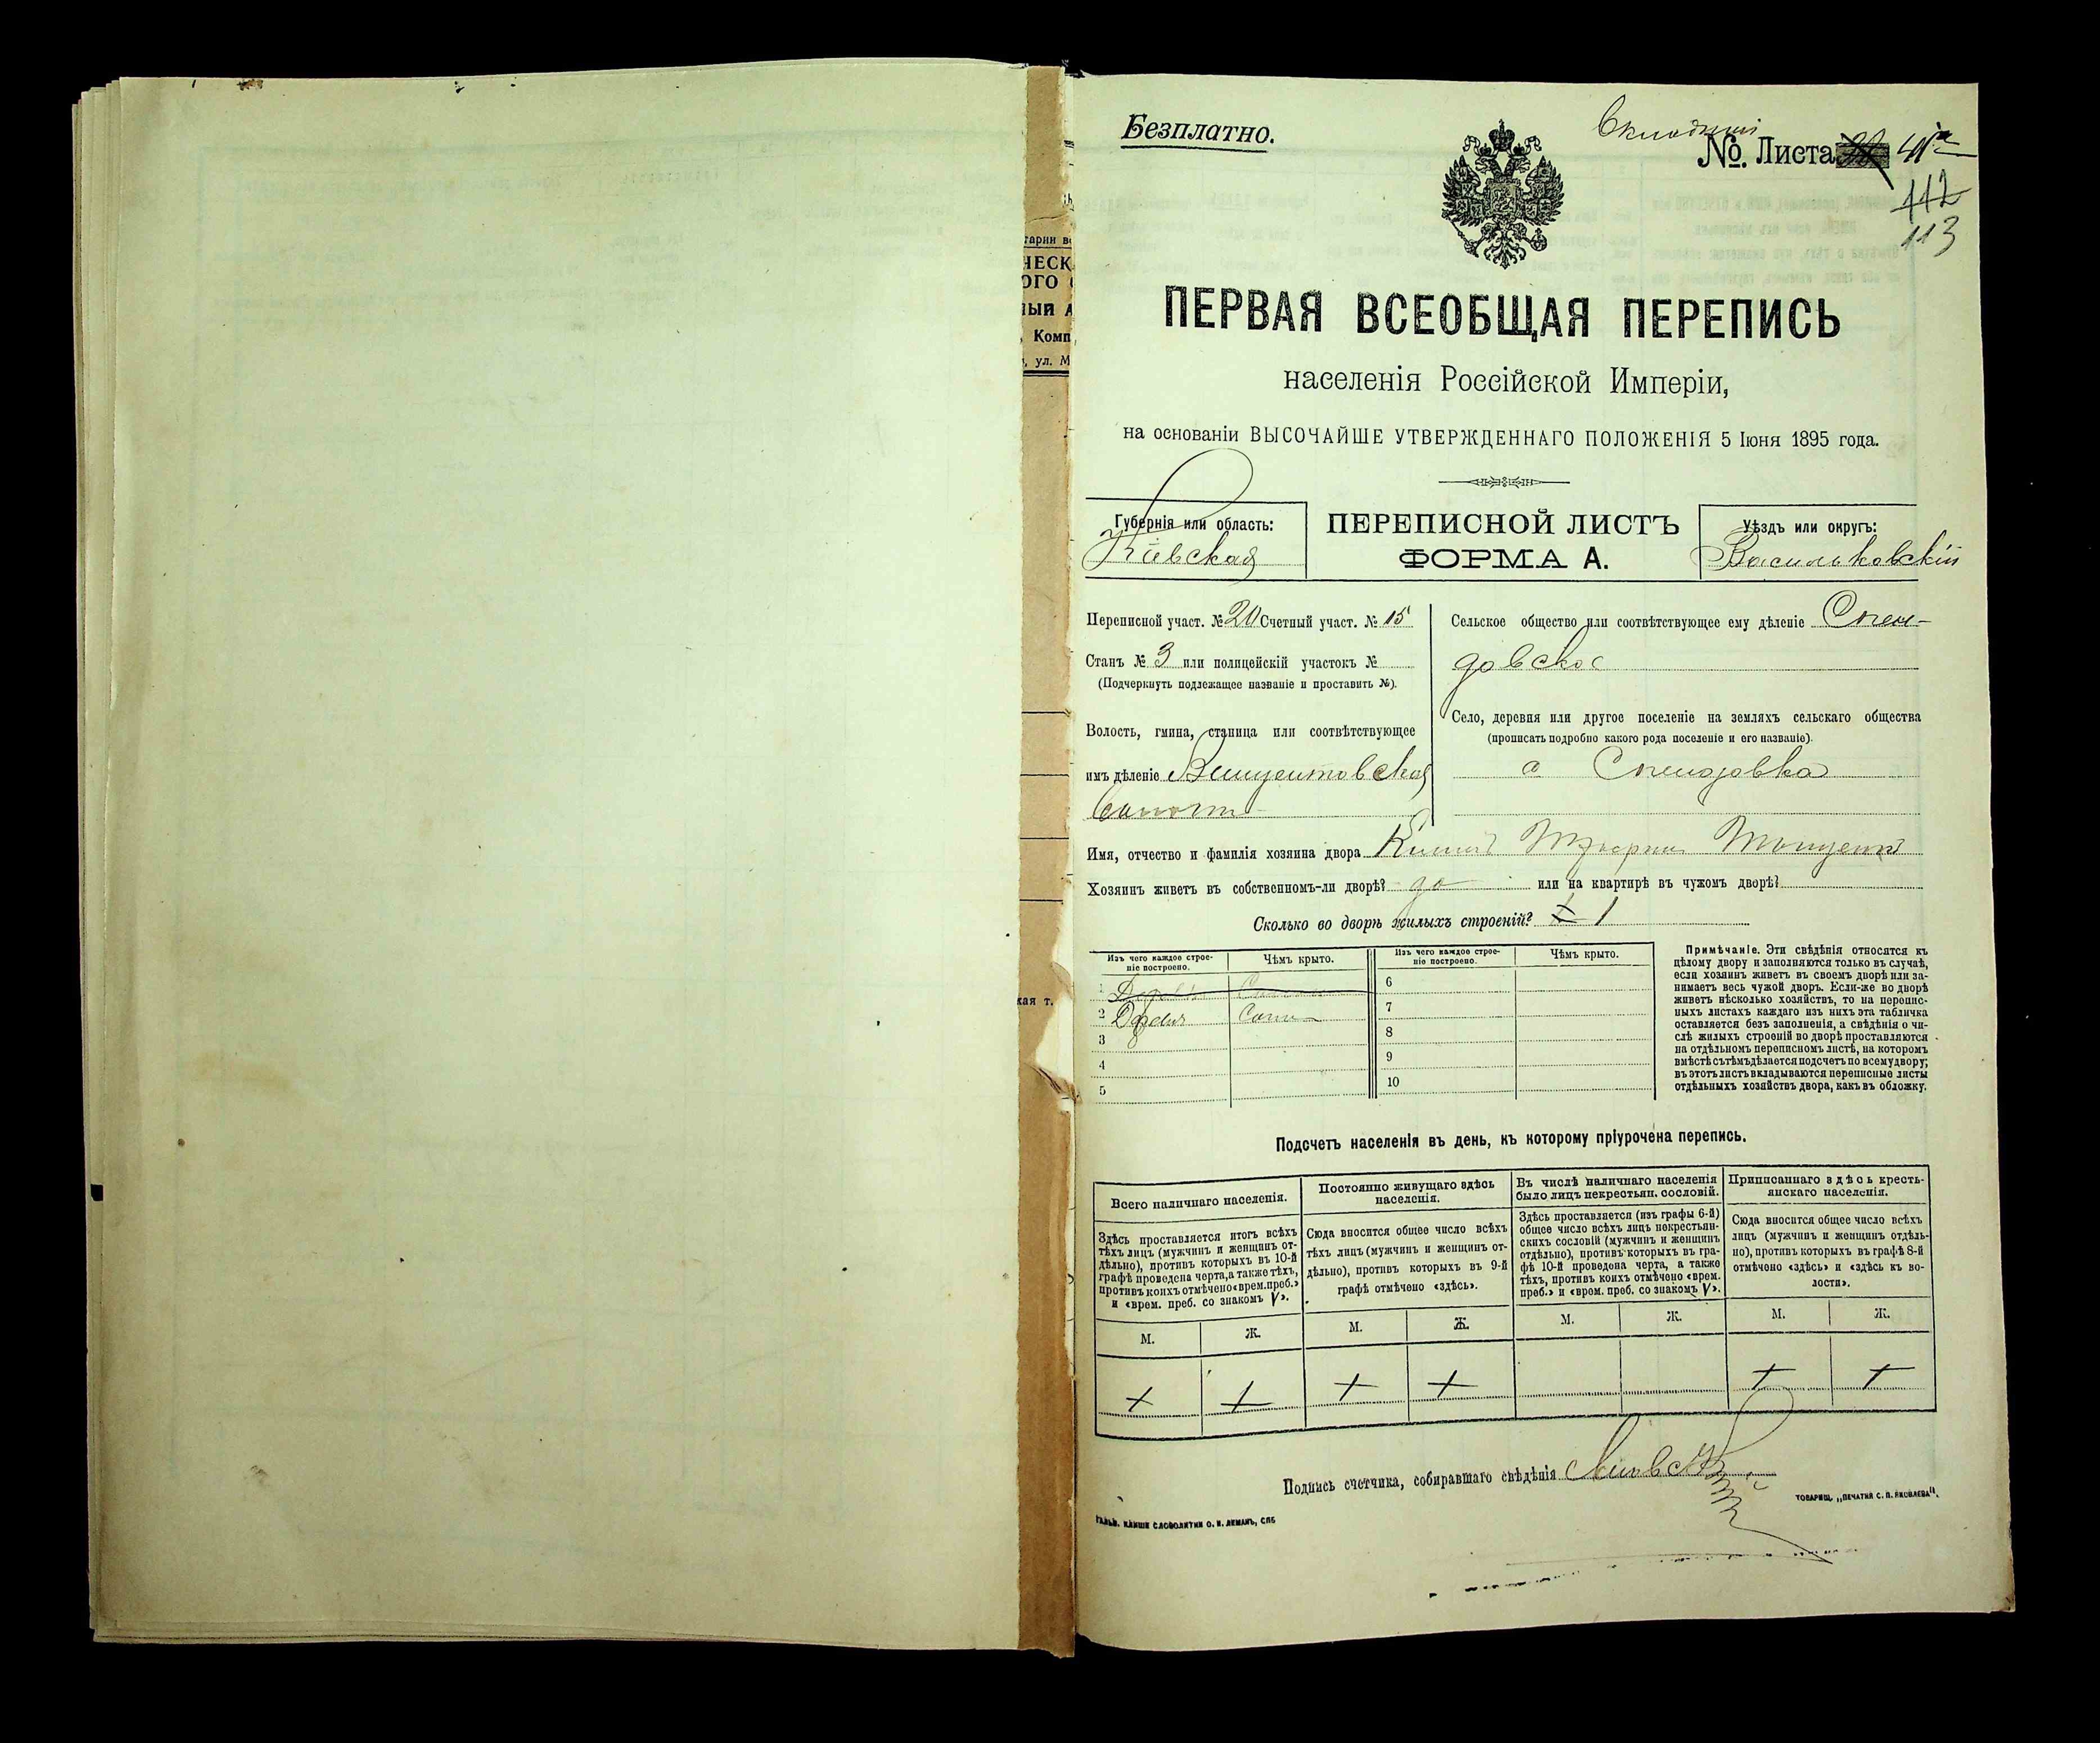 Безплатно.
№. Листа 41
112
113
ПЕРВАЯ ВСЕОБЩАЯ ПЕРЕПИСЬ
населенія Россійской Имперіи,
на основаніи ВЫСОЧАЙШЕ УТВЕРЖДЕННАГО ПОЛОЖЕНІЯ 5 Іюня 1895 года.
Губернія или область:
Кіевская
ПЕРЕПИСНОЙ ЛИСТЪ
ФОРМА А.
Уѣздъ или округъ:
Васильковскій
Переписной участ. № 20 Счетный участ. № 15
Станъ № 3 или полицейскій участокъ №
(Подчеркнуть подлежащее названіе и проставить №).
Волость, гмина, станица или соотвѣтствующее
имъ дѣленіе Винцентовская
Сельское общество или соотвѣтствующее ему дѣленіе
довское
Село, деревня или другое поселеніе на земляхъ сельскаго общества
(прописать подробно какого рода поселеніе и его названіе).
Имя, отчество и фамилія хозяина двора
Хозяинъ живетъ въ собственномъ-ли дворѣ? да или на квартирѣ въ чужомъ дворѣ?
Сколько во дворѣ жилыхъ строеній? 1
Изъ чего каждое строе-
ніе построено.
Чѣмъ крыто.
Изъ чего каждое строе-
ніе построено.
Чѣмъ крыто.
1
6
2
7
3
8
4
9
5
10
Примѣчаніе. Эти свѣдѣнія относятся къ
цѣлому двору и заполняются только въ случаѣ,
если хозяинъ живетъ въ своемъ дворѣ или за-
нимаетъ весь чужой дворъ. Если-же во дворѣ
живетъ нѣсколько хозяйствъ, то на перепис-
ныхъ листахъ каждаго изъ нихъ эта табличка
оставляется безъ заполненія, а свѣдѣнія о чи-
слѣ жилыхъ строеній во дворѣ проставляются
на отдѣльномъ переписномъ листѣ, на которомъ
вмѣстѣ съ тѣмъ дѣлается подсчетъ по всему двору;
въ этотъ листъ вкладываются переписные листы
отдѣльныхъ хозяйствъ двора, какъ въ обложку.
Подсчетъ населенія въ день, къ которому пріурочена перепись.
Всего наличнаго населенія.
Здѣсь проставляется итогъ всѣхъ
тѣхъ лицъ (мужчинъ и женщинъ от-
дѣльно), противъ которыхъ въ 10-й
графѣ проведена черта, а также тѣхъ,
противъ коихъ отмѣчено «врем. преб.»
и «врем. преб. со знакомъ V».
Постоянно живущаго здѣсь
населенія.
Сюда вносится общее число всѣхъ
тѣхъ лицъ (мужчинъ и женщинъ от-
дѣльно), противъ которыхъ въ 9-й
графѣ отмѣчено «здѣсь».
Въ числѣ наличнаго населенія
было лицъ некрестьян. сословій.
Здѣсь проставляется (изъ графы 6-й)
общее число всѣхъ лицъ некрестьян-
скихъ сословій (мужчинъ и женщинъ
отдѣльно), противъ которыхъ въ гра-
фѣ 10-й проведена черта, а также
тѣхъ, противъ коихъ отмѣчено «врем.
преб.» и «врем. преб. со знакомъ V».
Приписаннаго здѣсь кресть-
янскаго населенія.
Сюда вносится общее число всѣхъ
лицъ (мужчинъ и женщинъ отдѣль-
но), противъ которыхъ въ графѣ 8-й
отмѣчено «здѣсь» и «здѣсь къ во-
лости».
М. Ж. М. Ж. М. Ж. М. Ж.
Подпись счетчика, собиравшаго свѣдѣнія
ТОВАРИЩ. „ПЕЧАТНЯ С. П. ЯКОВЛЕВА".
КЛИШЕ СЛОВОЛИТНИ О. И. ЛЕМАНЪ, СПБ